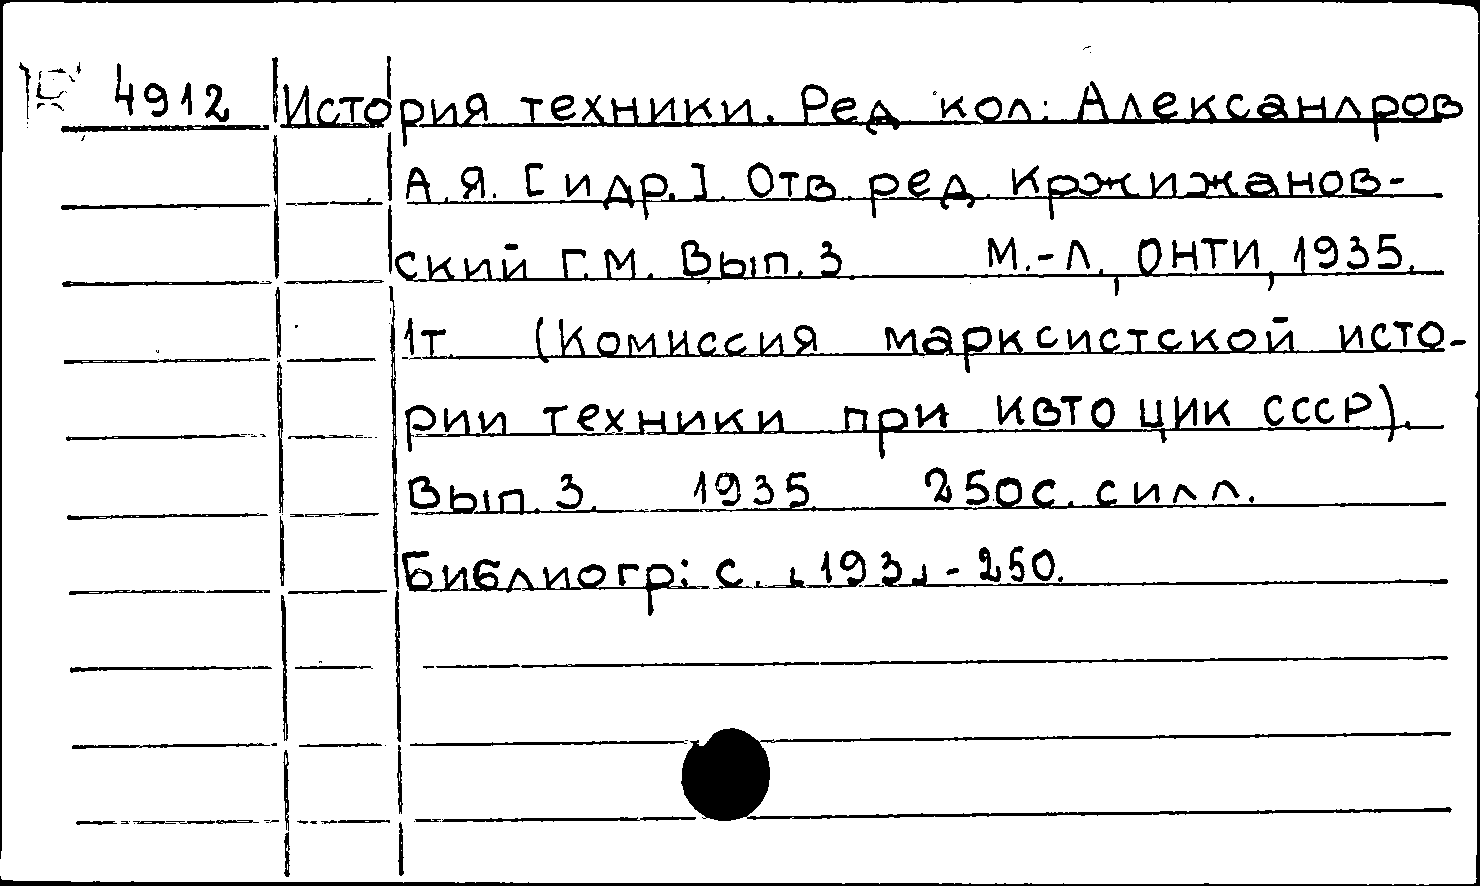 4912 История техники. Ред кол: Александров
А.Я. [и др.]. Отв. ред. Кржижанов-
ский Г.М. Вып. 3. М.-Л., ОНТИ, 1935.
1т. (Комиссия марксистской исто-
рии техники при КВТО ЦИК СССР).
Вып. 3. 1935. 250с. с илл.
Библиогр: с. [193]-250.